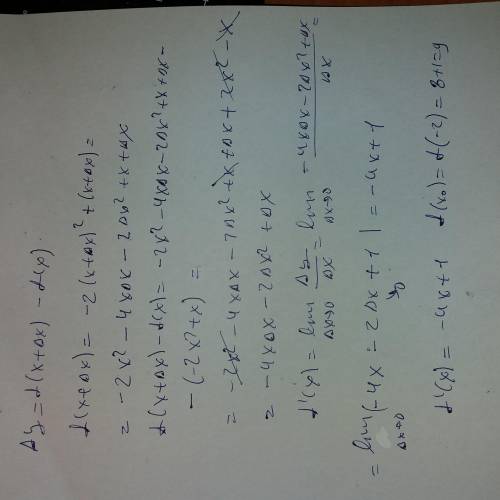 Δy = f(x+Δx) - f(x)
f(x+Δx) = -2(x+Δx)² + (x+Δx) =
= -2x² - 4xΔx - 2Δx² + x + Δx
f(x+Δx) - f(x) = -2x² - 4xΔx - 2Δx² + x + Δx -
- (-2x² + x) =
= -2x² - 4xΔx - 2Δx² + x + Δx + 2x² - x
= -4xΔx - 2Δx² + Δx
f'(x) = lim Δx→0 Δy/Δx = lim Δx→0 (-4xΔx - 2Δx² + Δx)/Δx =
= lim Δx→0 (-4x - 2Δx + 1) = -4x + 1
0
f'(x) = -4x + 1 f'(x₀) = f'(-2) = 8+1=9